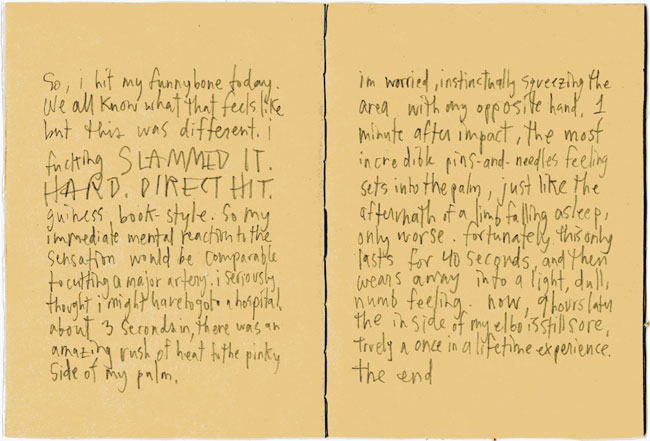 So, i hit my funnybone today.
We all know what that feels like
but this was different. i
fucking SLAMMED IT.
HARD. DIRECT HIT.
guiness book-style. So my
immediate mental reaction to the
sensation would be comparable
to cutting a major artery. i seriously
thought i might have to go to a hospital.
about 3 seconds in, there was an
amazing rush of heat to the pinky
side of my palm.
im worried, instinctually squeezing the
area with my opposite hand. 1
minute after impact, the most
incredible pins-and-needles feeling
sets into the palm, just like the
aftermath of a limb falling asleep,
only worse. fortunately, this only
lasts for 40 seconds, and then
wears away into a light, dull,
numb feeling. now, 9 hours later
the inside of my elbo is still sore,
truely a once in a lifetime experience.
the end